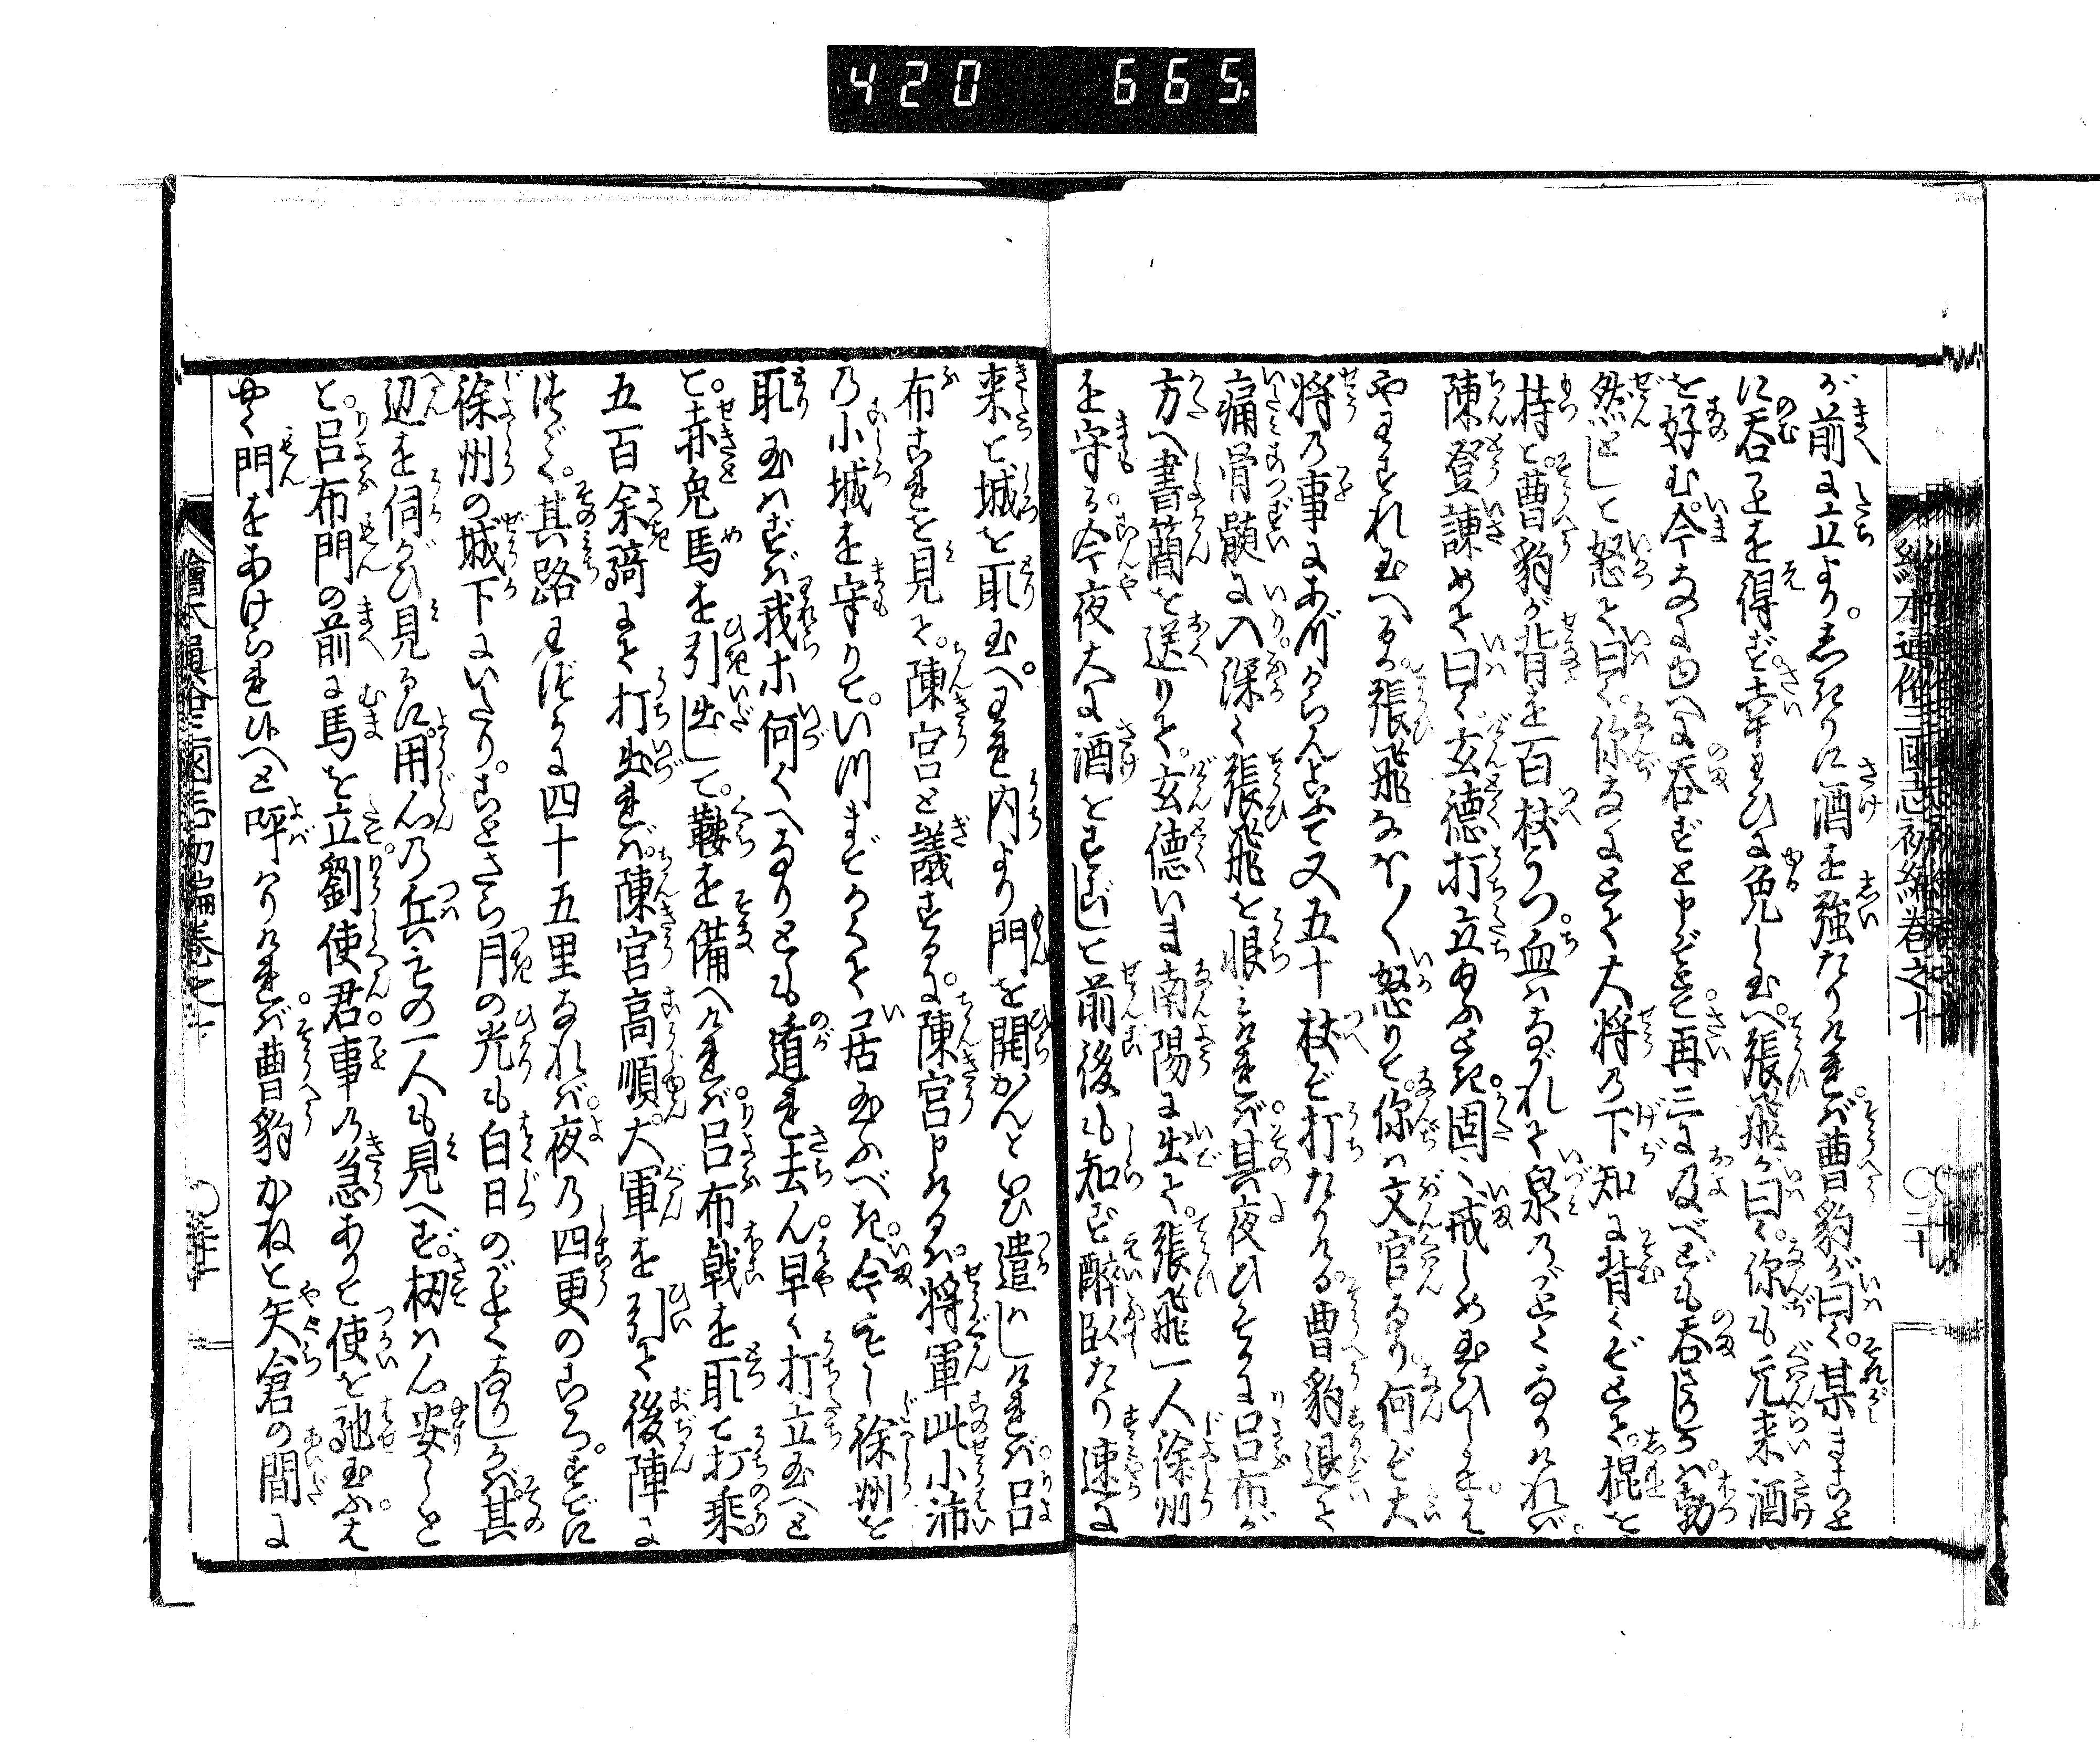 420 665.
繪本通俗三國志初編卷之十
〇二十
が前に立より。しきりに酒を強たりければ。曹豹が曰く。某まことに
に呑ことを得ず。幸ひに免し玉へ。張飛が曰く。你も元来酒
を好む。今なにゆへに呑ずと申ぞとて。再三に及べども呑ざりけれバ。勃
然として怒て曰く。你なにとて大将の下知に背くぞとて。棍を
持て。曹豹が背を一百杖うつ。血ハながれて泉のごとくなりけれバ。
陳登諌めて曰く。玄徳打立あふとき。固く戒しめ玉ひしことを
やわすれ玉へる。張飛なほ〱怒りて。你ハ文官なり。何ぞ大
将の事にあづからんとて。又五十杖ぞ打たりける。曹豹退て
痛骨髄に入。深く張飛を恨みければ。其夜ひそかに呂布が
方へ書簡を送りて。玄徳いま南陽に出て。張飛一人徐州
を守る。今夜大に酒をすごして前後も知ず醉臥たり速に
来て城を取玉へ。われ内より門を開かんといひ遣ハしければ。呂
布これを見て。陳宮と議するに。陳宮申けるハ。将軍此小沛
の小城を守りて。いつまでかくて居玉ふべき。今もし徐州を
取玉ハずバ。我等何くへなりとも遁れ去ん。早く打立玉へと
て。赤兎馬を引出して。鞍を備へければ。呂布戟を取て打乗。
五百余騎にて打出れば。陳宮高順。大軍を引て後陣に
つゞく。其路わづかに四十五里なれバ。夜の四更のころ。すでに
徐州の城下にいたり。ことさら月の光も白日のごとくなりしかば。其
辺を伺がひ見るに。用心の兵ものの一人も見へず。扨ハ心安しと
て。呂布門の前に馬を立。劉使君。事の急ありて使を馳玉ふぞ。
やく門をあけられ候へと呼ハりければ。曹豹かねて矢倉の間に
繪本通俗三國志初編卷之十
〇二十一